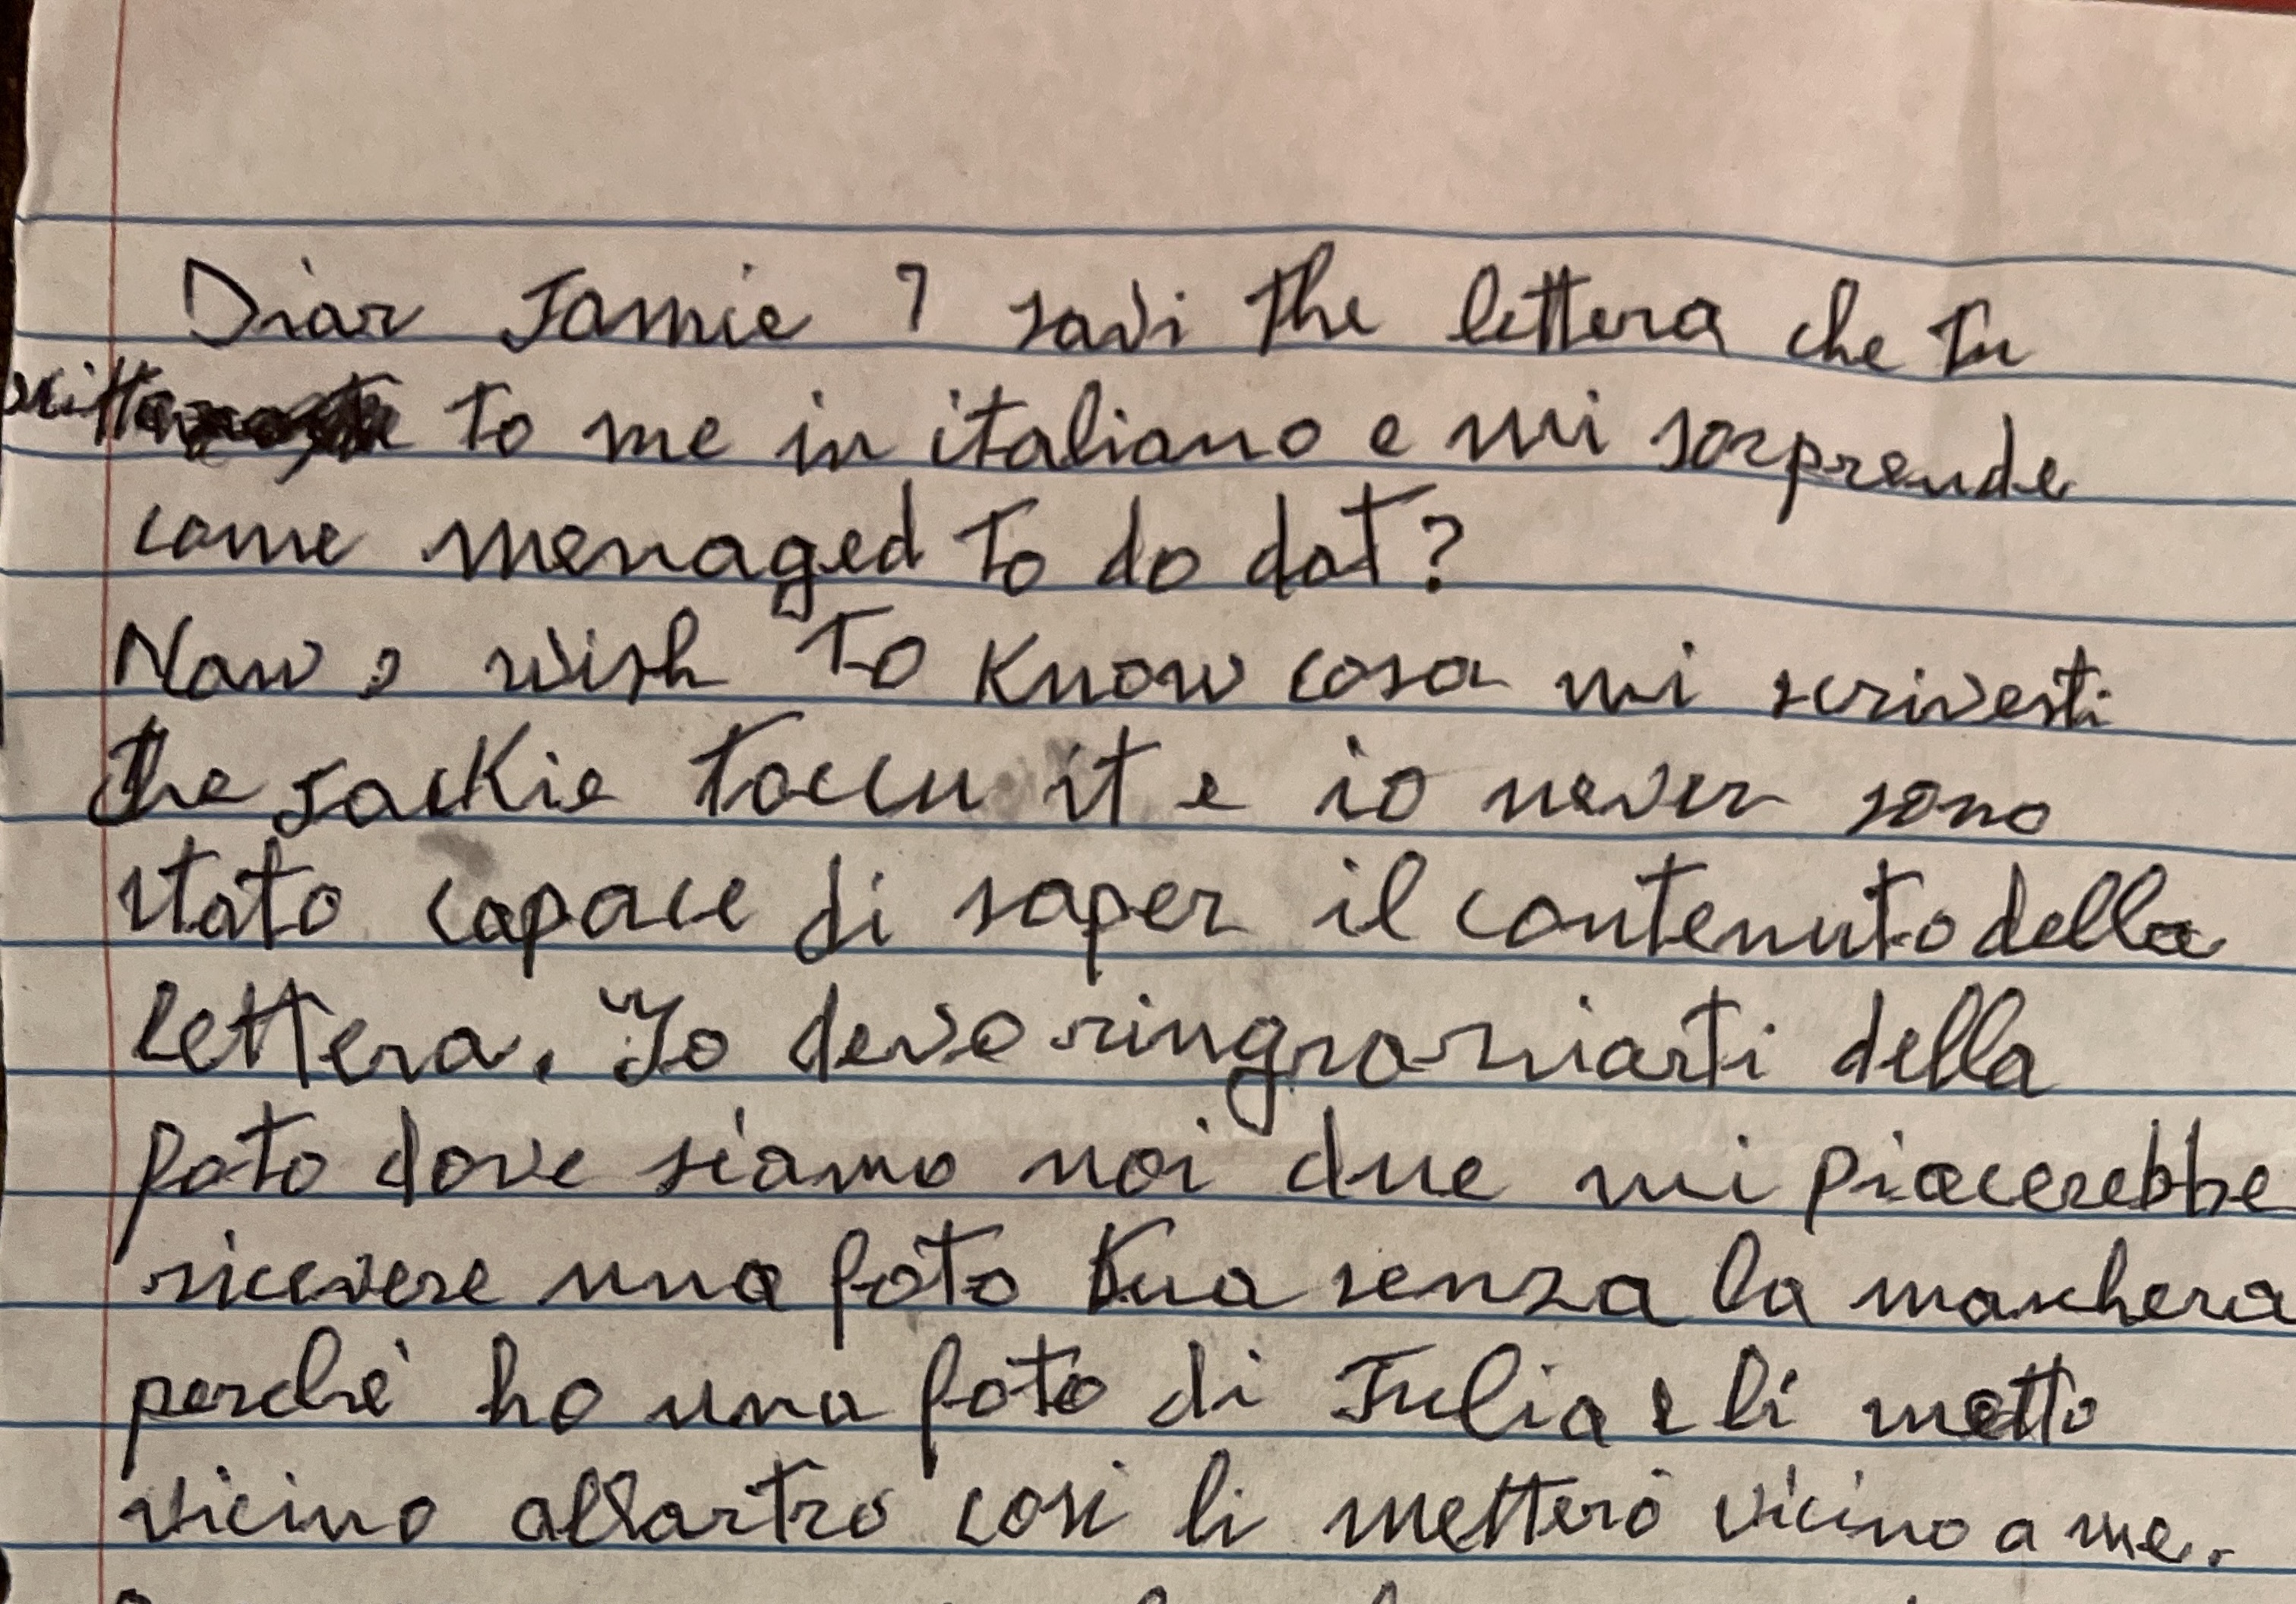 Diar Jamie I savi the lettera che tu
scritta to me in italiano e mi sorprende
come menaged to do dat?
Now I wish to know cosa mi scrivesti
the Jackie toccu it e io never sono
stato capace di saper il contenuto della
lettera. Io devo ringraziarti della
foto dove siamo noi due mi piacerebbe
ricevere una foto tua senza la maschera
perché ho una foto di Julia e li metto
vicino all'artro cosi li metterò vicino a me.